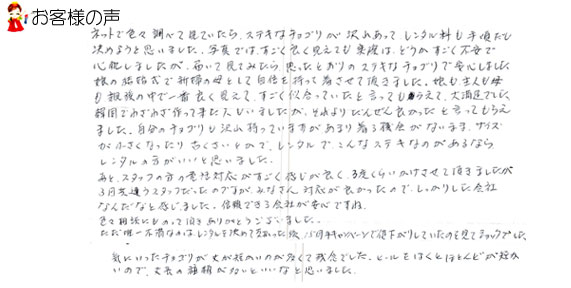 お客様の声
ネットで色々調べて見ていたら、ステキなチョゴリが沢山あって レンタル料も手頃だし
決めようと思いました。写真では、すごく良く見えても実際は、どうかすごく不安で
心配しましたが、届いて見てみたら 思ったとおりのステキなチョゴリで安心しました。
娘の結婚式で新婦の母として自信を持って着させて頂きました。娘も主人も母
も親族の中で一番良く見えて、すごく似合っていたと言ってもらえて、大満足でした。
韓国でわざわざ作って来た人もいましたが、それよりだんぜん良かったと言ってもらえ
ました。自分のチョゴリも沢山持っていますがあまり着る機会がないます。サイズ
が小さくなったり 古くさいとかで、レンタルで、こんなステキなのがあるなら
レンタルの方がいいと思いました。
あと、スタッフの方の電話対応がすごく感じが良く、3度くらいかけさせて頂きましたが
3回共違うスタッフだったのですが、みなさん 対応が良かったので、しっかりした会社
なんだなと感じました。信頼できる会社が安心ですね。
色々相談にものって頂き ありがとうございました。
ただ唯一不満なのは、レンタルを決めて支払った後、キャンペーンで値下がりしていたのを見てショックでした。
気にいったチョゴリが丈が短かいのが多くて残念でした。ヒールをはくとほとんどが短か
いので、丈長の種類が多いといいなと思いました。